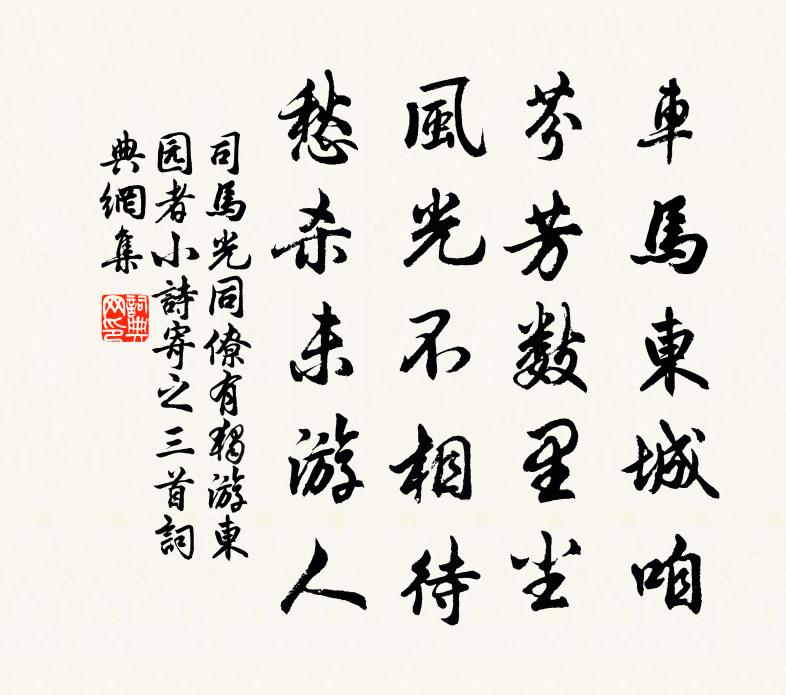 車馬東城咱
芬芳數里尘
風光不相待
愁杀未游人
司馬光同僚有獨游東
园者小詩寄之三首詞
典網集
詞典
网印